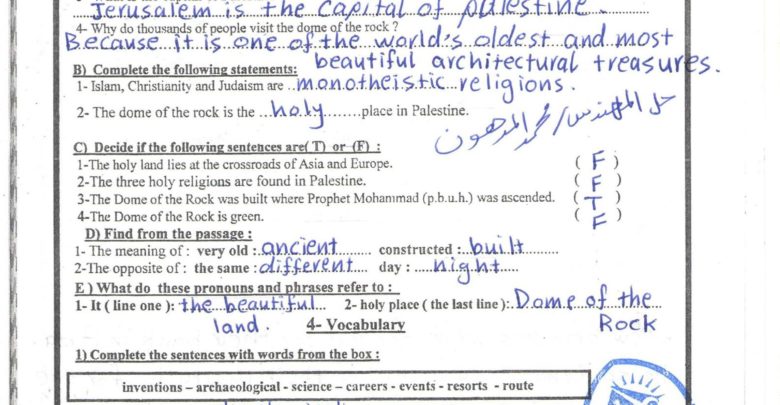 Jerusalem is the capital of palestine.
4- Why do thousands of people visit the dome of the rock ?
Because it is one of the world's oldest and most
beautiful architectural treasures.
B) Complete the following statements:
1- Islam, Christianity and Judaism are ..monotheistic religions.
2- The dome of the rock is the ..holy........place in Palestine.
حل المهندس/محمد المدهون
C) Decide if the following sentences are( T) or (F) :
1-The holy land lies at the crossroads of Asia and Europe. ( F )
2-The three holy religions are found in Palestine. ( F )
3-The Dome of the Rock was built where Prophet Mohammad (p.b.u.h.) was ascended. ( T )
4-The Dome of the Rock is green. ( F )
D) Find from the passage :
1- The meaning of : very old :.ancient......... constructed :..built.....
2-The opposite of : the same :different.... day : .....night.....
E ) What do these pronouns and phrases refer to :
1- It ( line one ): the beautiful... 2- holy place ( the last line ):.Dome of the
land. Rock
4- Vocabulary
1) Complete the sentences with words from the box :
inventions – archaeological - science – careers - events - resorts - route